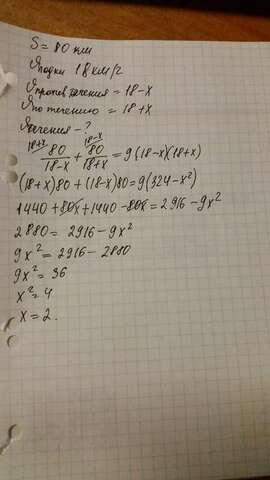 S = 80 км
Vлодки 18 км/ч
Vпротив течения = 18-x
Vпо течению = 18+x
Vтечения - ?
18+x 18-x
80/18-x + 80/18+x = 9(18-x)(18+x)
(18+x)80 + (18-x)80 = 9(324-x²)
1440 + 80x + 1440 - 80x = 2916 - 9x²
2880 = 2916 - 9x²
9x² = 2916 - 2880
9x² = 36
x² = 4
x = 2.